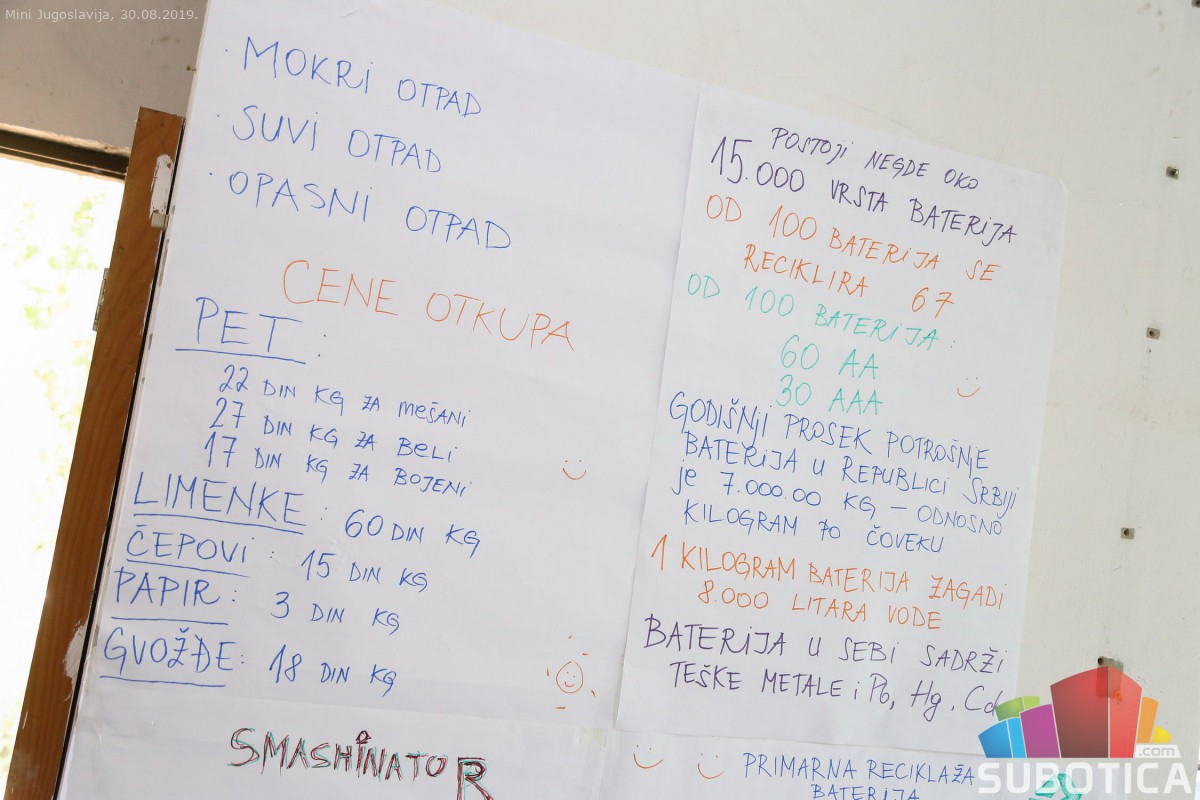 Mini Jugoslavija, 30.08.2019.
· MOKRI OTPAD
· SUVI OTPAD
· OPASNI OTPAD
CENE OTKUPA
PET:
22 DIN KG ZA MEŠANI
27 DIN KG ZA BELI
17 DIN KG ZA BOJENI
LIMENKE: 60 DIN KG
ČEPOVI: 15 DIN KG
PAPIR: 3 DIN KG
GVOŽĐE: 18 DIN KG
SMASHINATOR
POSTOJI NEGDE OKO
15.000 VRSTA BATERIJA
OD 100 BATERIJA SE
RECIKLIRA 67
OD 100 BATERIJA:
60 AA
30 AAA
GODIŠNJI PROSEK POTROŠNJE
BATERIJA U REPUBLICI SRBIJI
JE 7.000.00 KG – ODNOSNO
KILOGRAM PO ČOVEKU
1 KILOGRAM BATERIJA ZAGADI
8.000 LITARA VODE
BATERIJA U SEBI SADRŽI
TEŠKE METALE i Pb, Hg, Cd
PRIMARNA RECIKLAŽA
BATERIJA
SUBOTICA.com